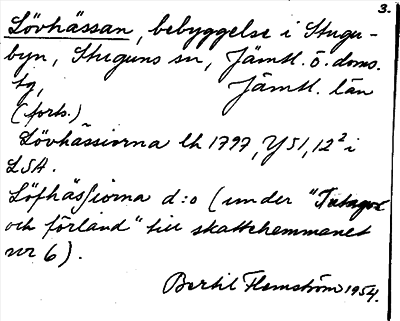 3.
Lövhässan, bebyggelse i Stugu-
byn, Stuguns sn, Jämtl. ö. doms.
tg, Jämtl. län
(forts.)
Lövhässiorna lh 1797, Y 51, 12² i
LSA.
Löfhässiorna d:o (under "Intagor
och förland" till skattehemmanet
nr 6).
Bertil Flemström 1954.